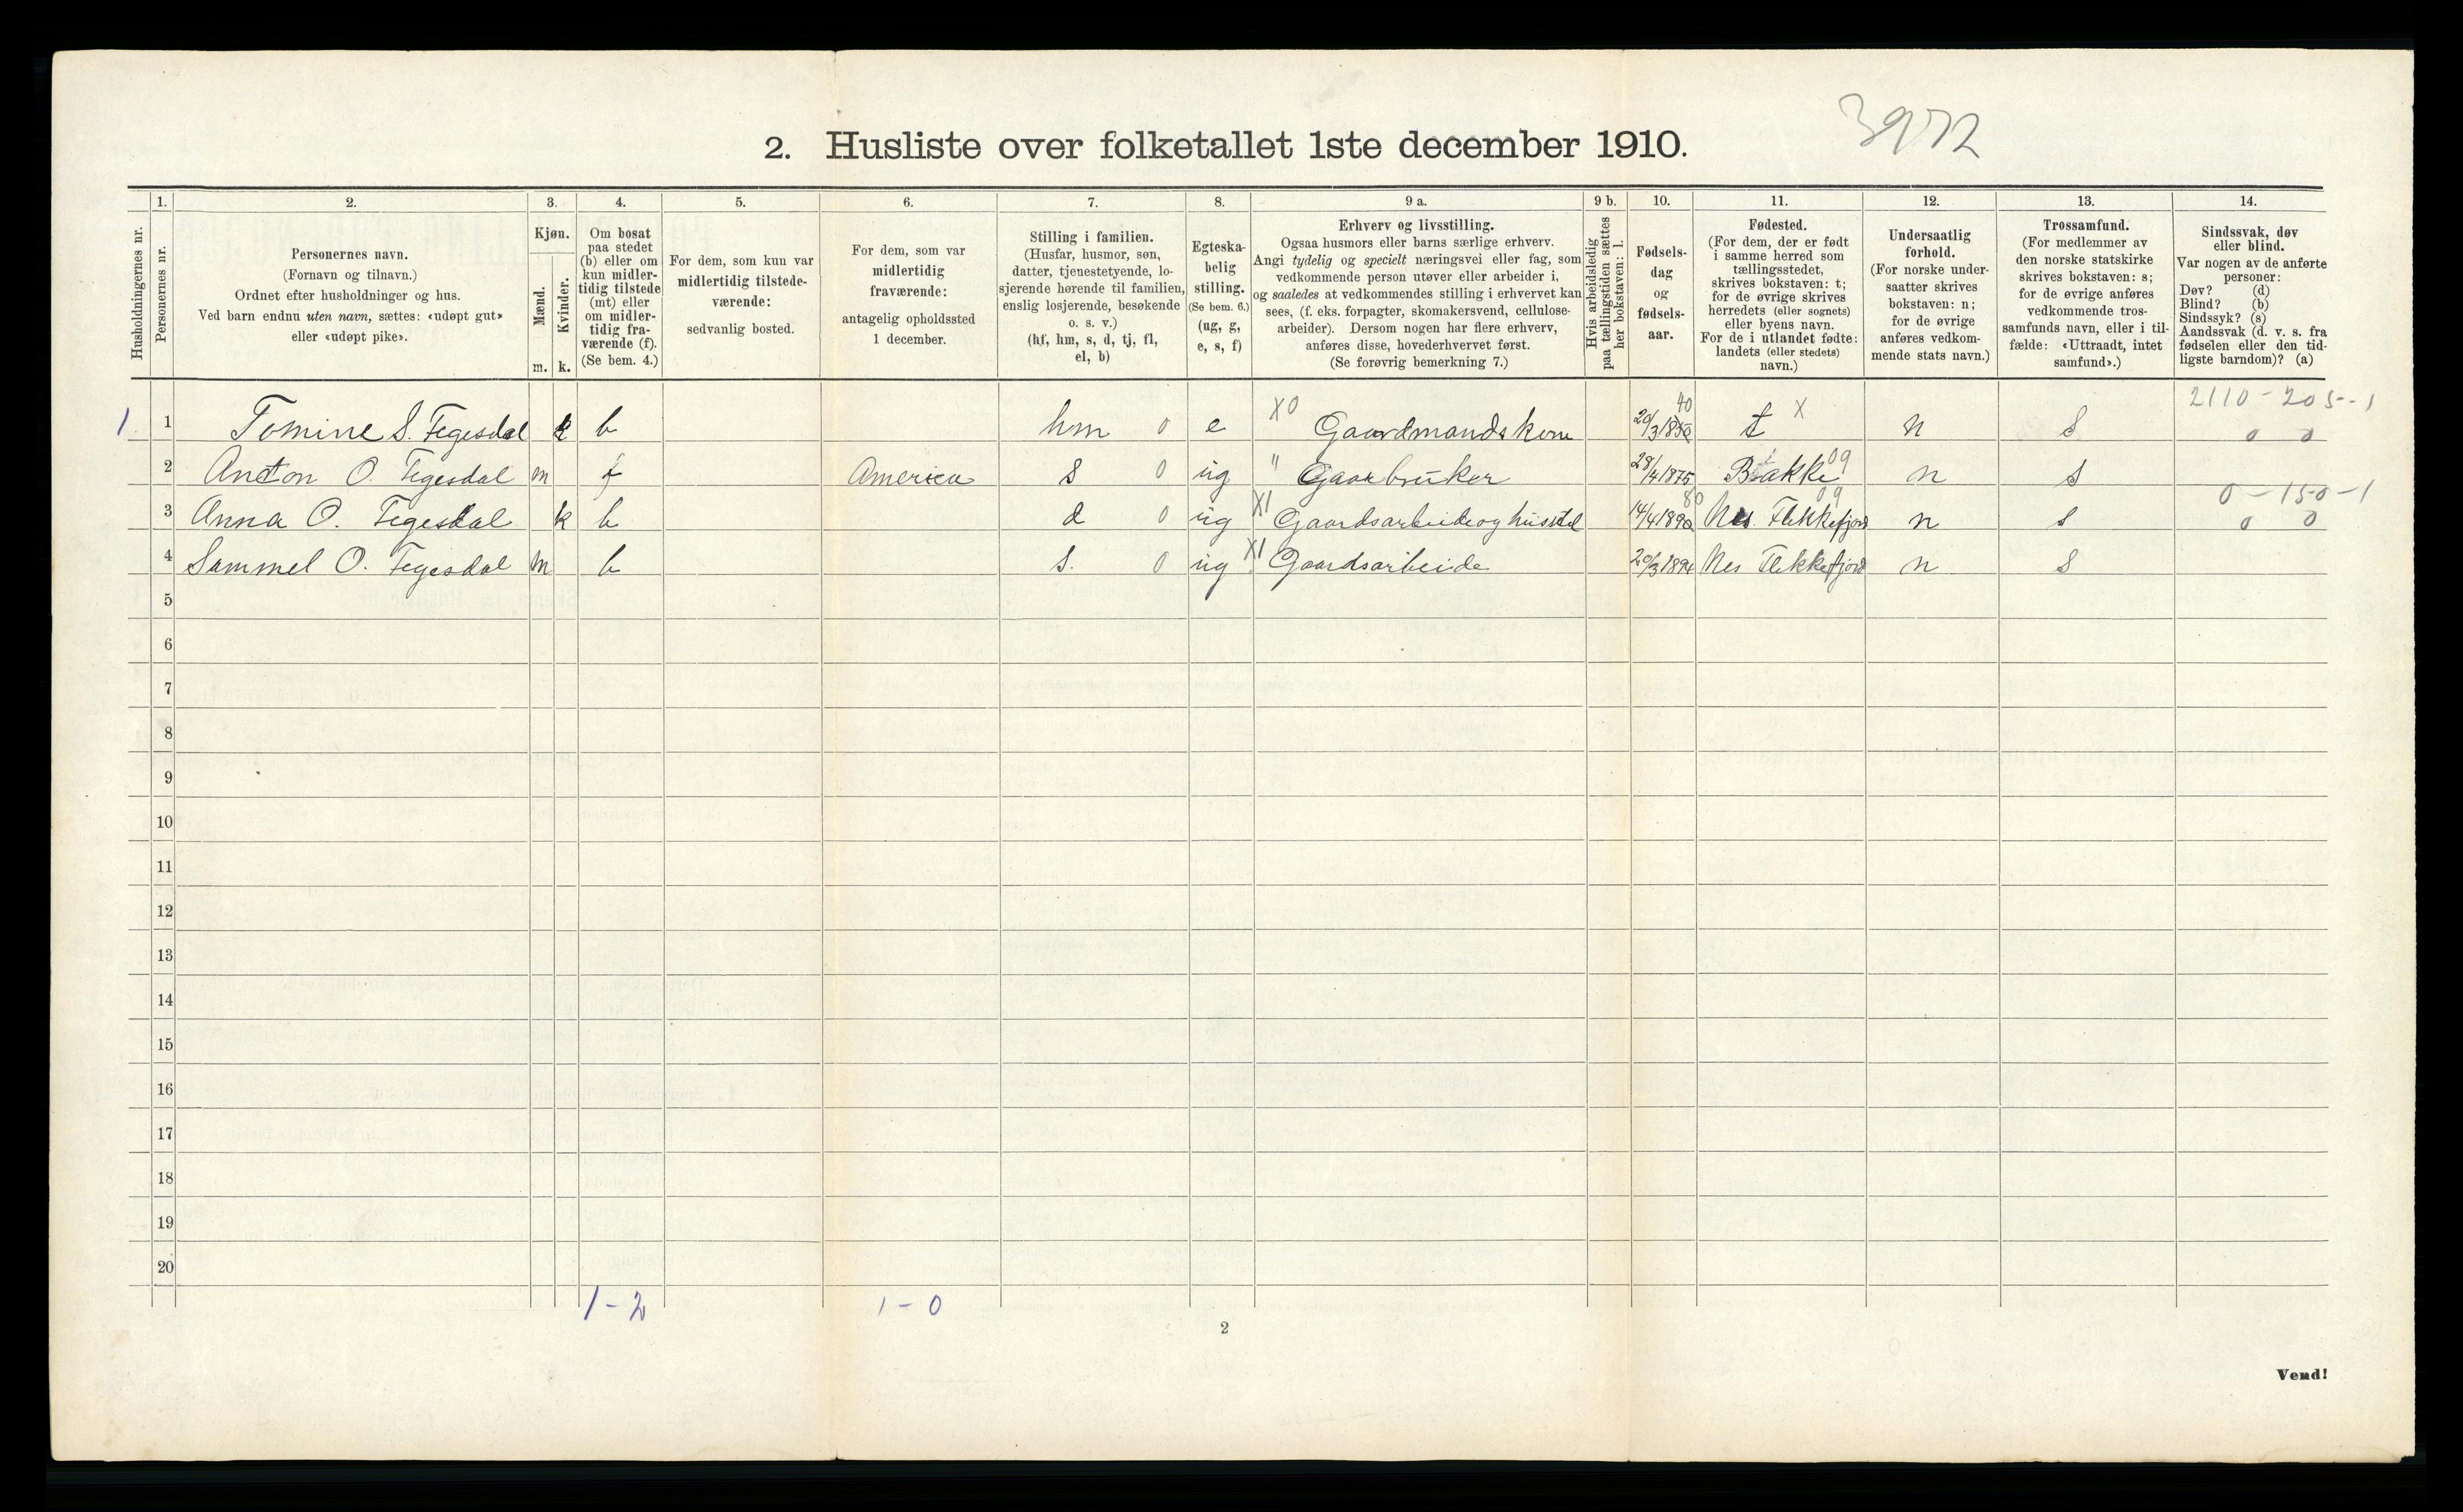 3972
2. Husliste over folketallet 1ste december 1910.
Husholdningernes nr.
1.
Personernes nr.
2.
Personernes navn.
(Fornavn og tilnavn.)
Ordnet efter husholdninger og hus.
Ved barn endnu uten navn, sættes: «udøpt gut»
eller «udøpt pike».
3.
Kjøn.
Mænd.
Kvinder.
m. k.
4.
Om bosat
paa stedet
(b) eller om
kun midler-
tidig tilstede
(mt) eller
om midler-
tidig fra-
værende (f).
(Se bem. 4.)
5.
For dem, som kun var
midlertidig tilstede-
værende:
sedvanlig bosted.
6.
For dem, som var
midlertidig
fraværende:
antagelig opholdssted
1 december.
7.
Stilling i familien.
(Husfar, husmor, søn,
datter, tjenestetyende, lo-
sjerende hørende til familien,
enslig losjerende, besøkende
o. s. v.)
(hf, hm, s, d, tj, fl,
el, b)
8.
Egteska-
belig
stilling.
(Se bem. 6.)
(ug, g,
e, s, f)
9 a.
Erhverv og livsstilling.
Ogsaa husmors eller barns særlige erhverv.
Angi tydelig og specielt næringsvei eller fag, som
vedkommende person utøver eller arbeider i,
og saaledes at vedkommendes stilling i erhvervet kan
sees, (f. eks. forpagter, skomakersvend, cellulose-
arbeider). Dersom nogen har flere erhverv,
anføres disse, hovederhvervet først.
(Se forøvrig bemerkning 7.)
9 b.
Hvis arbeidsledig
paa tællingstiden sættes
her bokstaven: l.
10.
Fødsels-
dag
og
fødsels-
aar.
11.
Fødested.
(For dem, der er født
i samme herred som
tællingsstedet,
skrives bokstaven: t;
for de øvrige skrives
herredets (eller sognets)
eller byens navn.
For de i utlandet fødte:
landets (eller stedets)
navn.)
12.
Undersaatlig
forhold.
(For norske under-
saatter skrives
bokstaven: n;
for de øvrige
anføres vedkom-
mende stats navn.)
13.
Trossamfund.
(For medlemmer av
den norske statskirke
skrives bokstaven: s;
for de øvrige anføres
vedkommende tros-
samfunds navn, eller i til-
fælde: «Uttraadt, intet
samfund».)
14.
Sindssvak, døv
eller blind.
Var nogen av de anførte
personer:
Døv? (d)
Blind? (b)
Sindssyk? (s)
Aandssvak (d. v. s. fra
fødselen eller den tid-
ligste barndom)? (a)
40 2110-205-1
1 1 Tomine S. Fegesdal k b hm 0 e X0 Gaardmandskone 20/3 1850 t X n S 0 0
2 Anton O. Fegesdal m f America s 0 ug " Gaarbruker 28/4 1875 Bakke 09 n s
80 09 0-150-1
3 Anna O. Fegesdal k b d 0 ug X1 Gaardsarbeide og husstel 14/4 1890 Nes. Flekkefjord n s 0 0
4 Sammel O. Fegesdal m b s. 0 ug X1 Gaardsarbeide 20/3 1894 Nes Flekkefjord n s
5
6
7
8
9
10
11
12
13
14
15
16
17
18
19
20
1-2 1-0
2
Vend!